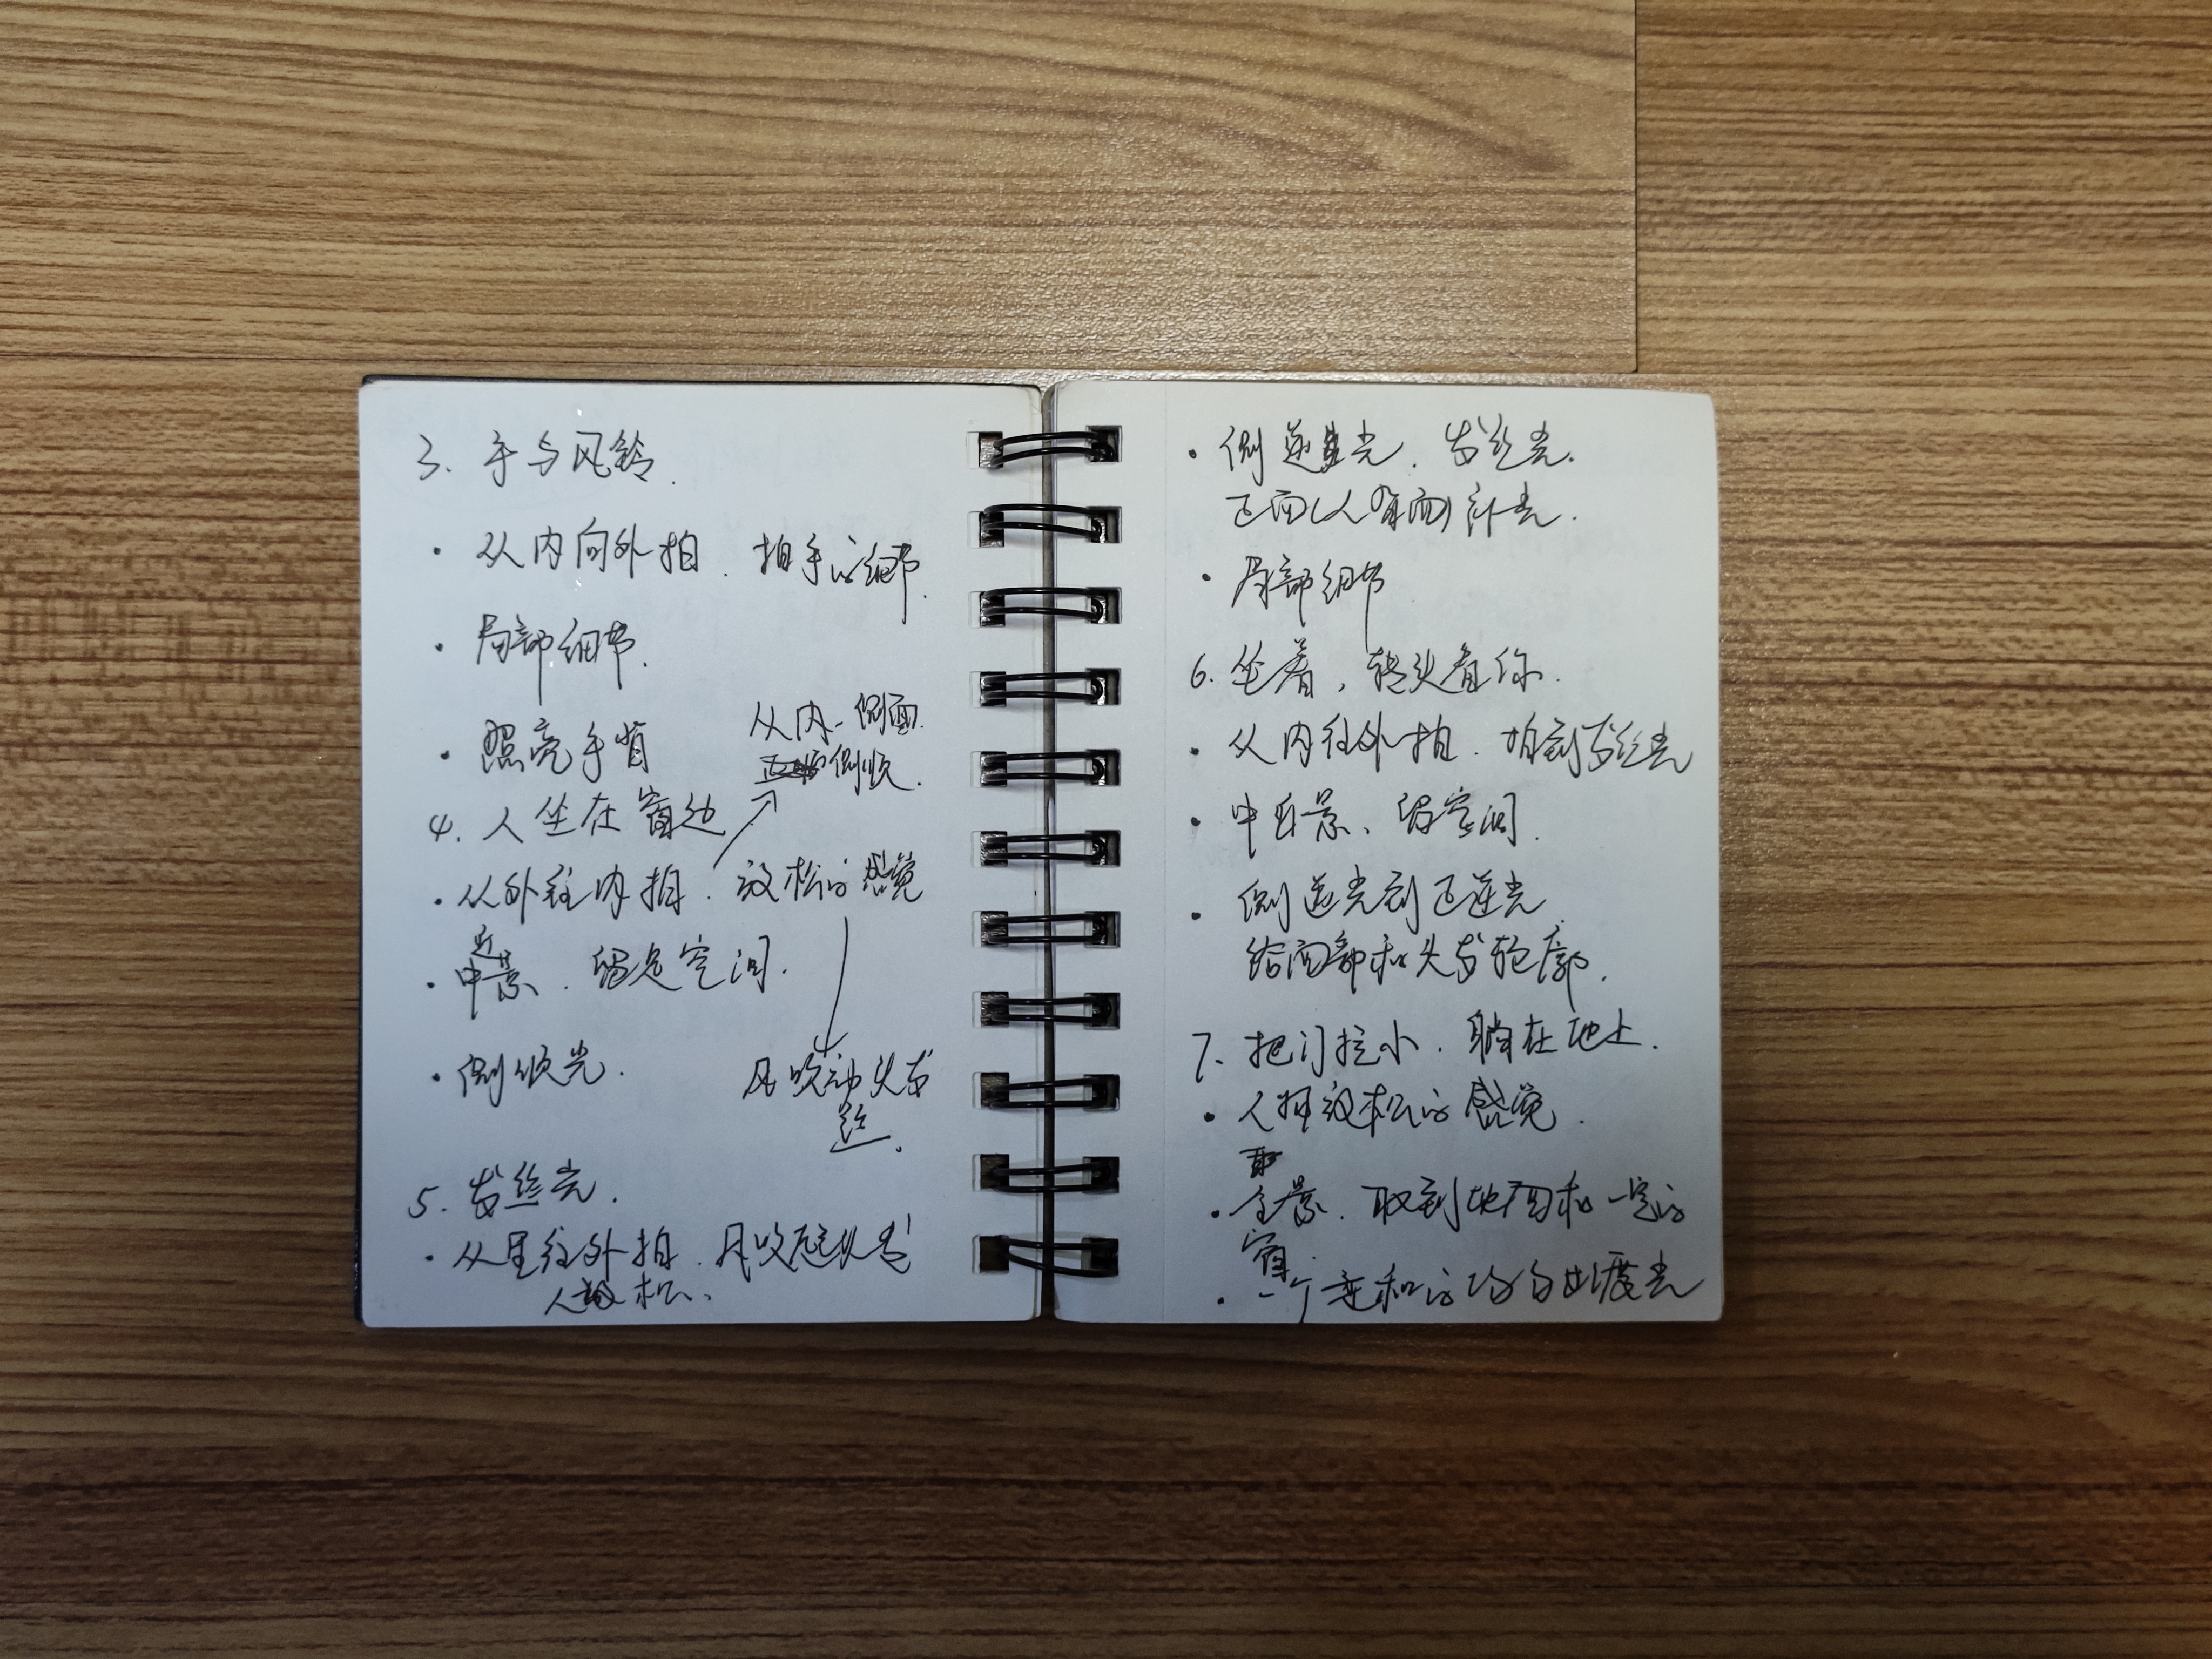 3. 手与风铃.
· 从内向外拍. 拍手的细节.
· 局部细节.
· 照亮手背
从内-侧面.
侧顺.
4. 人坐在窗边
· 从外往内拍. 放松的感觉
· 中近景. 留足空间.
· 侧顺光.
风吹动头发
5. 发丝光.
· 从里往外拍. 风吹起头发
人放松.
· 侧逆光. 发丝光.
正面(人背面)补光.
· 局部细节
6. 坐着, 转头看你.
· 从内往外拍. 拍到发丝光
· 中近景、留空间.
· 侧逆光到正逆光
给面部和头发轮廓.
7. 把门拉小. 躺在地上.
· 人择放松的感觉.
· 全景. 取到地面和一定的
窗.
· 一个柔和的均匀过渡光